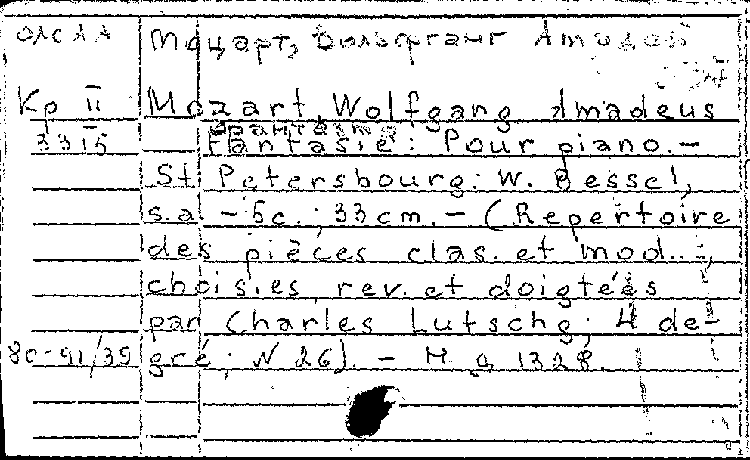 Моцарт, Вольфганг Амадей
Кр II Mozart, Wolfgang Amadeus
3315 Fantasie: Pour piano. –
St. Petersbourg: W. Bessel,
s.a. – 5c.; 33 cm. – (Repertoire
des pièces clas. et mod.
choisies, rev. et doigtées
par Charles Lutschg; 4 de-
80-91/39 gré; N 26). – Н. д. 1328.